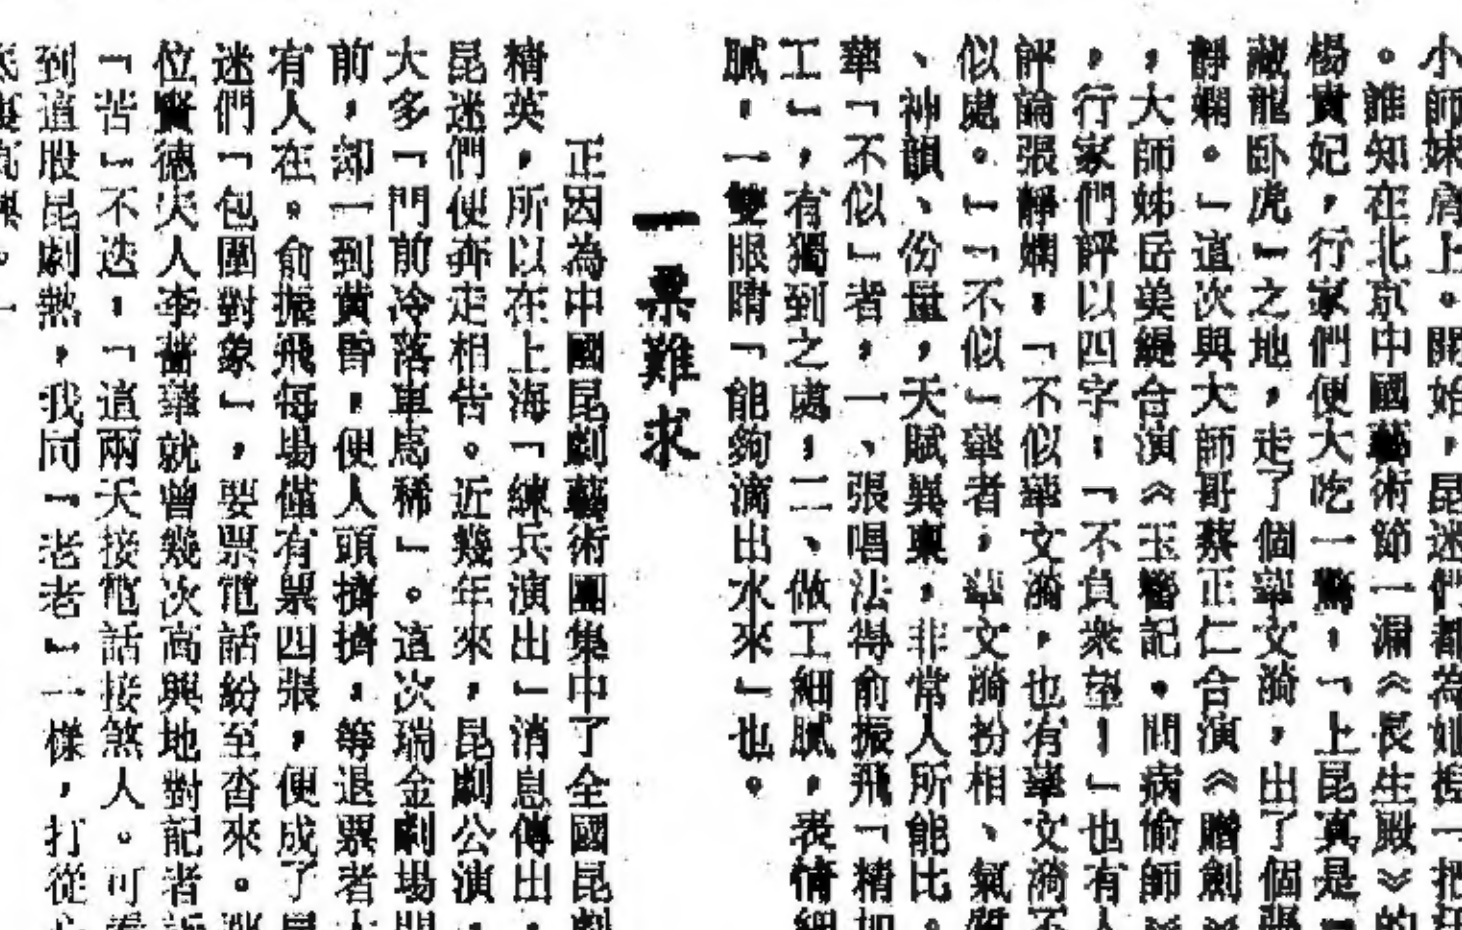 小師妹肩上。開始,昆迷們都為她捏一把
。誰知在北京中國藝術節一漏《長生殿》的
楊貴妃,行家們便大吃一驚,「上昆真是
藏龍卧虎」之地,走了個華文漪,出了個張
靜嫻。」這次與大師哥蔡正仁合演《贈劍》
,大師姊岳美緹合演《玉簪記。問病偷師》
,行家們評以四字:「不負衆望!」也有人
評論張靜嫻,「不似華文漪,也有華文漪不
似處。」「不似」華者,華文漪扮相、氣質
、神韻、份量,天賦異稟,非常人所能比。
華「不似」者,一、張唱法得俞振飛「精加
工」,有獨到之處;二、做工細膩,表情細
膩,一雙眼睛「能夠滴出水來」也。
一票難求
正因為中國昆劇藝術團集中了全國昆劇
精英,所以在上海「練兵演出」消息傳出,
昆迷們便奔走相告。近幾年來,昆劇公演,
大多「門前冷落車馬稀」。這次瑞金劇場門
前,却一到黄昏,便人頭擠擠,等退票者大
有人在。俞振飛每場僅有票四張,便成了昆
迷們「包圍對象」,要票電話紛至沓來。
位賢德夫人李薔華就曾幾次高興地對記者訴
「苦」不迭,「這兩天接電話接煞人。可
到這股昆劇熱,我同「老老」一樣,打從心
底裏高興。」